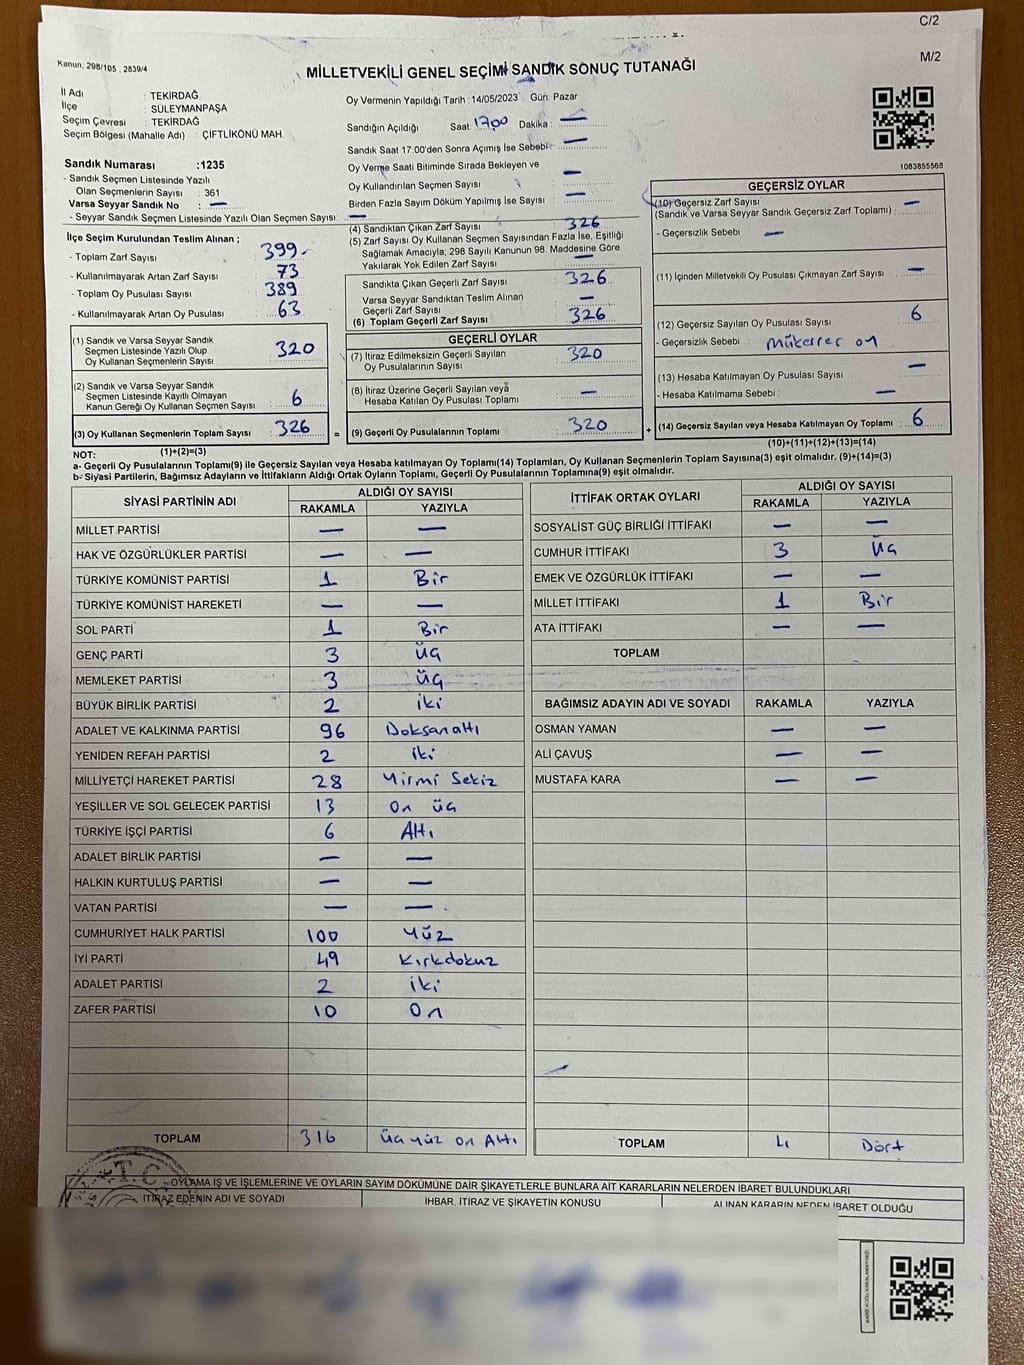 C/2
Kanun: 298/105 , 2839/4
M/2
MİLLETVEKİLİ GENEL SEÇİMİ SANDIK SONUÇ TUTANAĞI
İl Adı : TEKİRDAĞ
İlçe : SÜLEYMANPAŞA
Seçim Çevresi : TEKİRDAĞ
Seçim Bölgesi (Mahalle Adı) : ÇİFTLİKÖNÜ MAH.
Oy Vermenin Yapıldığı Tarih :14/05/2023 Gün: Pazar
Sandığın Açıldığı Saat: 17:00 Dakika : —
Sandık Saat 17:00'den Sonra Açımış İse Sebebi: —
Oy Verme Saati Bitiminde Sırada Bekleyen ve
Oy Kullandırılan Seçmen Sayısı —
Birden Fazla Sayım Döküm Yapılmış İse Sayısı —
1083855568
Sandık Numarası :1235
- Sandık Seçmen Listesinde Yazılı
Olan Seçmenlerin Sayısı : 361
Varsa Seyyar Sandık No : —
- Seyyar Sandık Seçmen Listesinde Yazılı Olan Seçmen Sayısı: —
İlçe Seçim Kurulundan Teslim Alınan ;
- Toplam Zarf Sayısı : 399
- Kullanılmayarak Artan Zarf Sayısı : 73
- Toplam Oy Pusulası Sayısı : 389
- Kullanılmayarak Artan Oy Pusulası : 63
(1) Sandık ve Varsa Seyyar Sandık
Seçmen Listesinde Yazılı Olup
Oy Kullanan Seçmenlerin Sayısı : 320
(2) Sandık ve Varsa Seyyar Sandık
Seçmen Listesinde Kayıtlı Olmayan
Kanun Gereği Oy Kullanan Seçmen Sayısı : 6
(3) Oy Kullanan Seçmenlerin Toplam Sayısı : 326
(1)+(2)=(3)
(4) Sandıktan Çıkan Zarf Sayısı : 326
(5) Zarf Sayısı Oy Kullanan Seçmen Sayısından Fazla İse, Eşitliği
Sağlamak Amacıyla; 298 Sayılı Kanunun 98. Maddesine Göre
Yakılarak Yok Edilen Zarf Sayısı :
Sandıkta Çıkan Geçerli Zarf Sayısı : 326
Varsa Seyyar Sandıktan Teslim Alınan
Geçerli Zarf Sayısı : —
(6) Toplam Geçerli Zarf Sayısı : 326
GEÇERLİ OYLAR
(7) İtiraz Edilmeksizin Geçerli Sayılan
Oy Pusulalarının Sayısı : 320
(8) İtiraz Üzerine Geçerli Sayılan veya
Hesaba Katılan Oy Pusulası Toplamı : —
= (9) Geçerli Oy Pusulalarının Toplamı : 320 +
GEÇERSİZ OYLAR
(10) Geçersiz Zarf Sayısı
(Sandık ve Varsa Seyyar Sandık Geçersiz Zarf Toplamı) : —
- Geçersizlik Sebebi : —
(11) İçinden Milletvekili Oy Pusulası Çıkmayan Zarf Sayısı : —
(12) Geçersiz Sayılan Oy Pusulası Sayısı : 6
- Geçersizlik Sebebi : Mükerrer oy
(13) Hesaba Katılmayan Oy Pusulası Sayısı : —
- Hesaba Katılmama Sebebi : —
(14) Geçersiz Sayılan veya Hesaba Katılmayan Oy Toplamı : 6
(10)+(11)+(12)+(13)=(14)
NOT:
a- Geçerli Oy Pusulalarının Toplamı(9) ile Geçersiz Sayılan veya Hesaba katılmayan Oy Toplamı(14) Toplamları, Oy Kullanan Seçmenlerin Toplam Sayısına(3) eşit olmalıdır. (9)+(14)=(3)
b- Siyasi Partilerin, Bağımsız Adayların ve İttifakların Aldığı Ortak Oyların Toplamı, Geçerli Oy Pusulalarının Toplamına(9) eşit olmalıdır.
SİYASİ PARTİNİN ADI ALDIĞI OY SAYISI
RAKAMLA YAZIYLA
MİLLET PARTİSİ — —
HAK VE ÖZGÜRLÜKLER PARTİSİ — —
TÜRKİYE KOMÜNİST PARTİSİ 1 Bir
TÜRKİYE KOMÜNİST HAREKETİ — —
SOL PARTİ 1 Bir
GENÇ PARTİ 3 Üç
MEMLEKET PARTİSİ 3 Üç
BÜYÜK BİRLİK PARTİSİ 2 iki
ADALET VE KALKINMA PARTİSİ 96 Doksanaltı
YENİDEN REFAH PARTİSİ 2 iki
MİLLİYETÇİ HAREKET PARTİSİ 28 Yirmi Sekiz
YEŞİLLER VE SOL GELECEK PARTİSİ 13 On üç
TÜRKİYE İŞÇİ PARTİSİ 6 Altı
ADALET BİRLİK PARTİSİ — —
HALKIN KURTULUŞ PARTİSİ — —
VATAN PARTİSİ — —
CUMHURİYET HALK PARTİSİ 100 Yüz
İYİ PARTİ 49 Kırkdokuz
ADALET PARTİSİ 2 iki
ZAFER PARTİSİ 10 On
TOPLAM 316 Üç yüz on Altı
İTTİFAK ORTAK OYLARI ALDIĞI OY SAYISI
RAKAMLA YAZIYLA
SOSYALİST GÜÇ BİRLİĞİ İTTİFAKI — —
CUMHUR İTTİFAKI 3 Üç
EMEK VE ÖZGÜRLÜK İTTİFAKI — —
MİLLET İTTİFAKI 1 Bir
ATA İTTİFAKI — —
TOPLAM
BAĞIMSIZ ADAYIN ADI VE SOYADI RAKAMLA YAZIYLA
OSMAN YAMAN — —
ALİ ÇAVUŞ — —
MUSTAFA KARA — —
TOPLAM 4 Dört
T.C.
OYLAMA İŞ VE İŞLEMLERİNE VE OYLARIN SAYIM DÖKÜMÜNE DAİR ŞİKAYETLERLE BUNLARA AİT KARARLARIN NELERDEN İBARET BULUNDUKLARI
İTİRAZ EDENİN ADI VE SOYADI İHBAR, İTİRAZ VE ŞİKAYETİN KONUSU ALINAN KARARIN NEDEN İBARET OLDUĞU